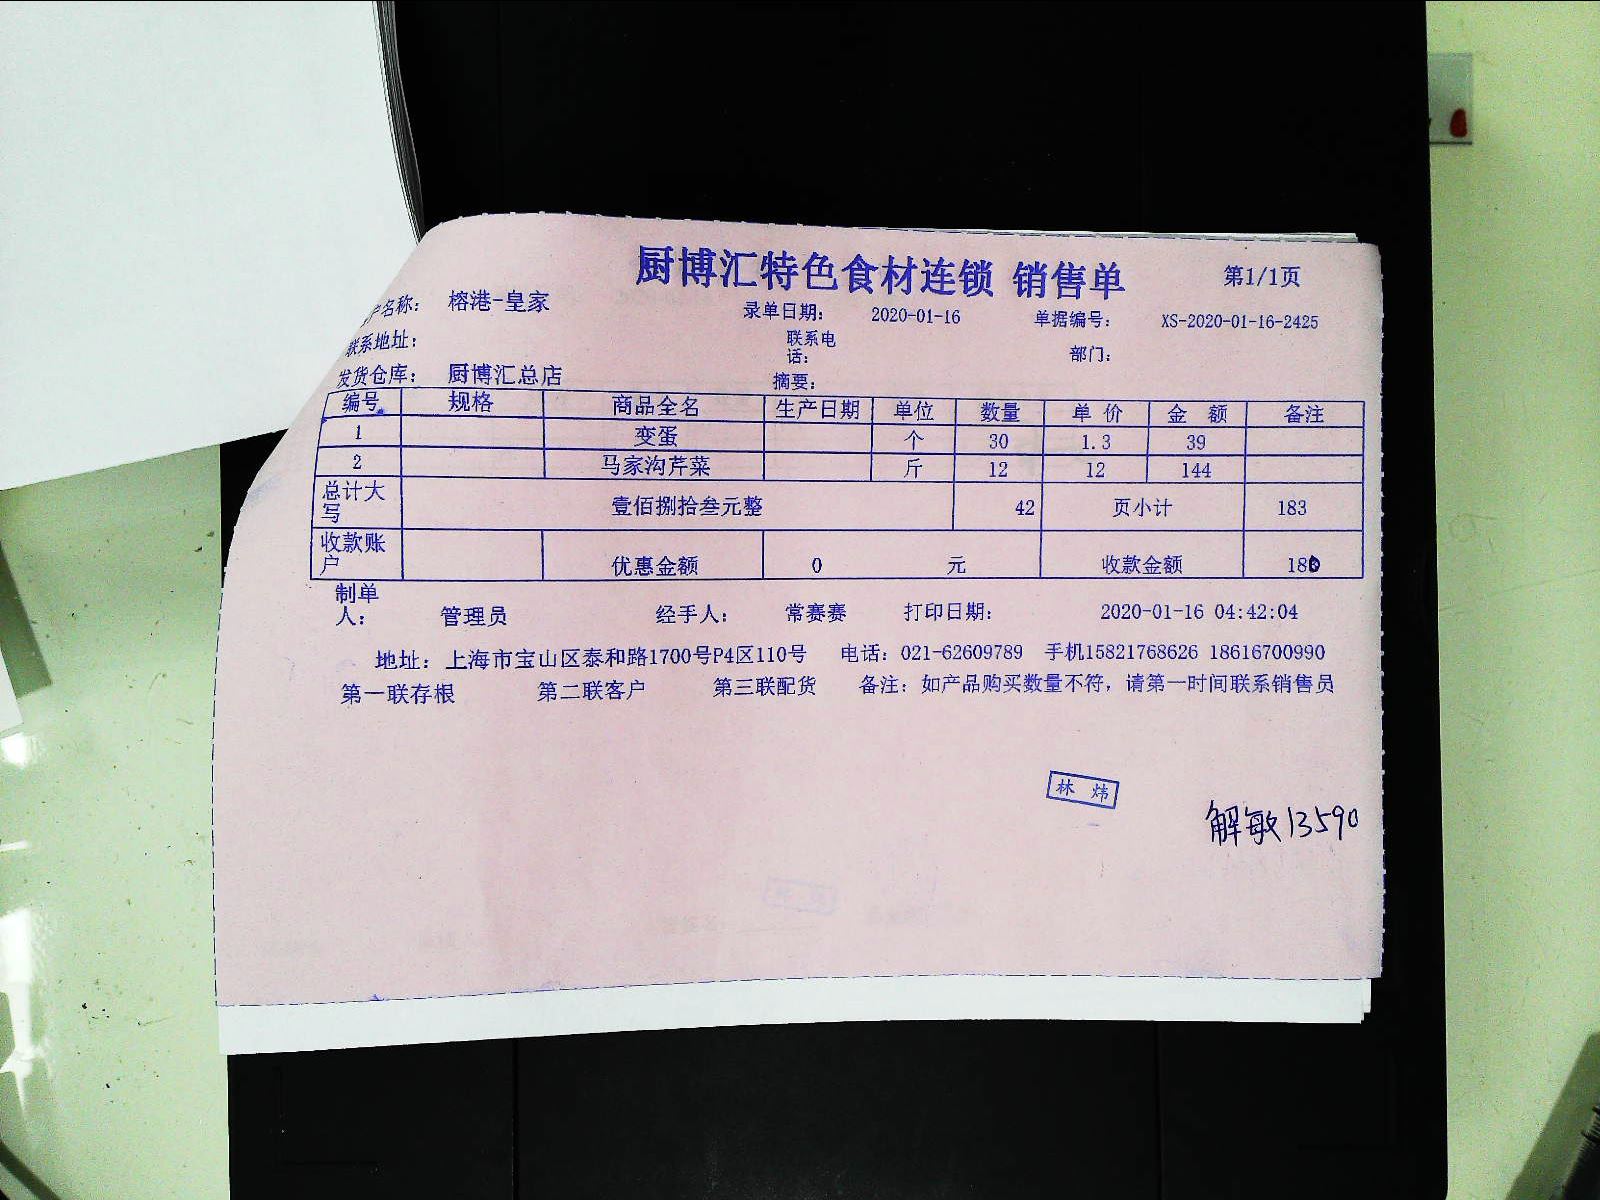 厨博汇特色食材连锁 销售单 第1/1页
户名称： 榕港-皇家 录单日期： 2020-01-16 单据编号： XS-2020-01-16-2425
联系地址： 联系电话： 部门：
发货仓库： 厨博汇总店 摘要：
编号 规格 商品全名 生产日期 单位 数量 单价 金额 备注
1 变蛋 个 30 1.3 39
2 马家沟芹菜 斤 12 12 144
总计大写 壹佰捌拾叁元整 42 页小计 183
收款账户 优惠金额 0 元 收款金额 180
制单人： 管理员 经手人： 常赛赛 打印日期： 2020-01-16 04:42:04
地址：上海市宝山区泰和路1700号P4区110号 电话：021-62609789 手机15821768626 18616700990
第一联存根 第二联客户 第三联配货 备注：如产品购买数量不符，请第一时间联系销售员
林 炜
解敏13590